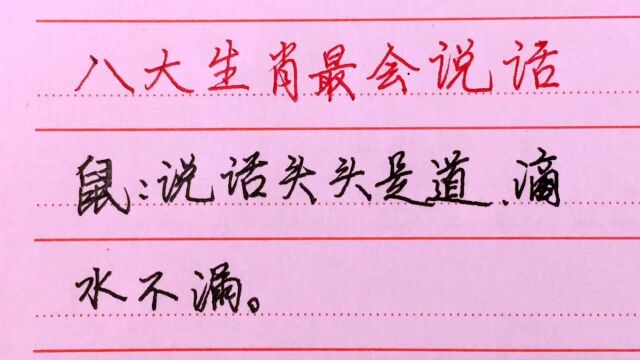 八大生肖最会说话
鼠:说话头头是道、滴
水不漏。